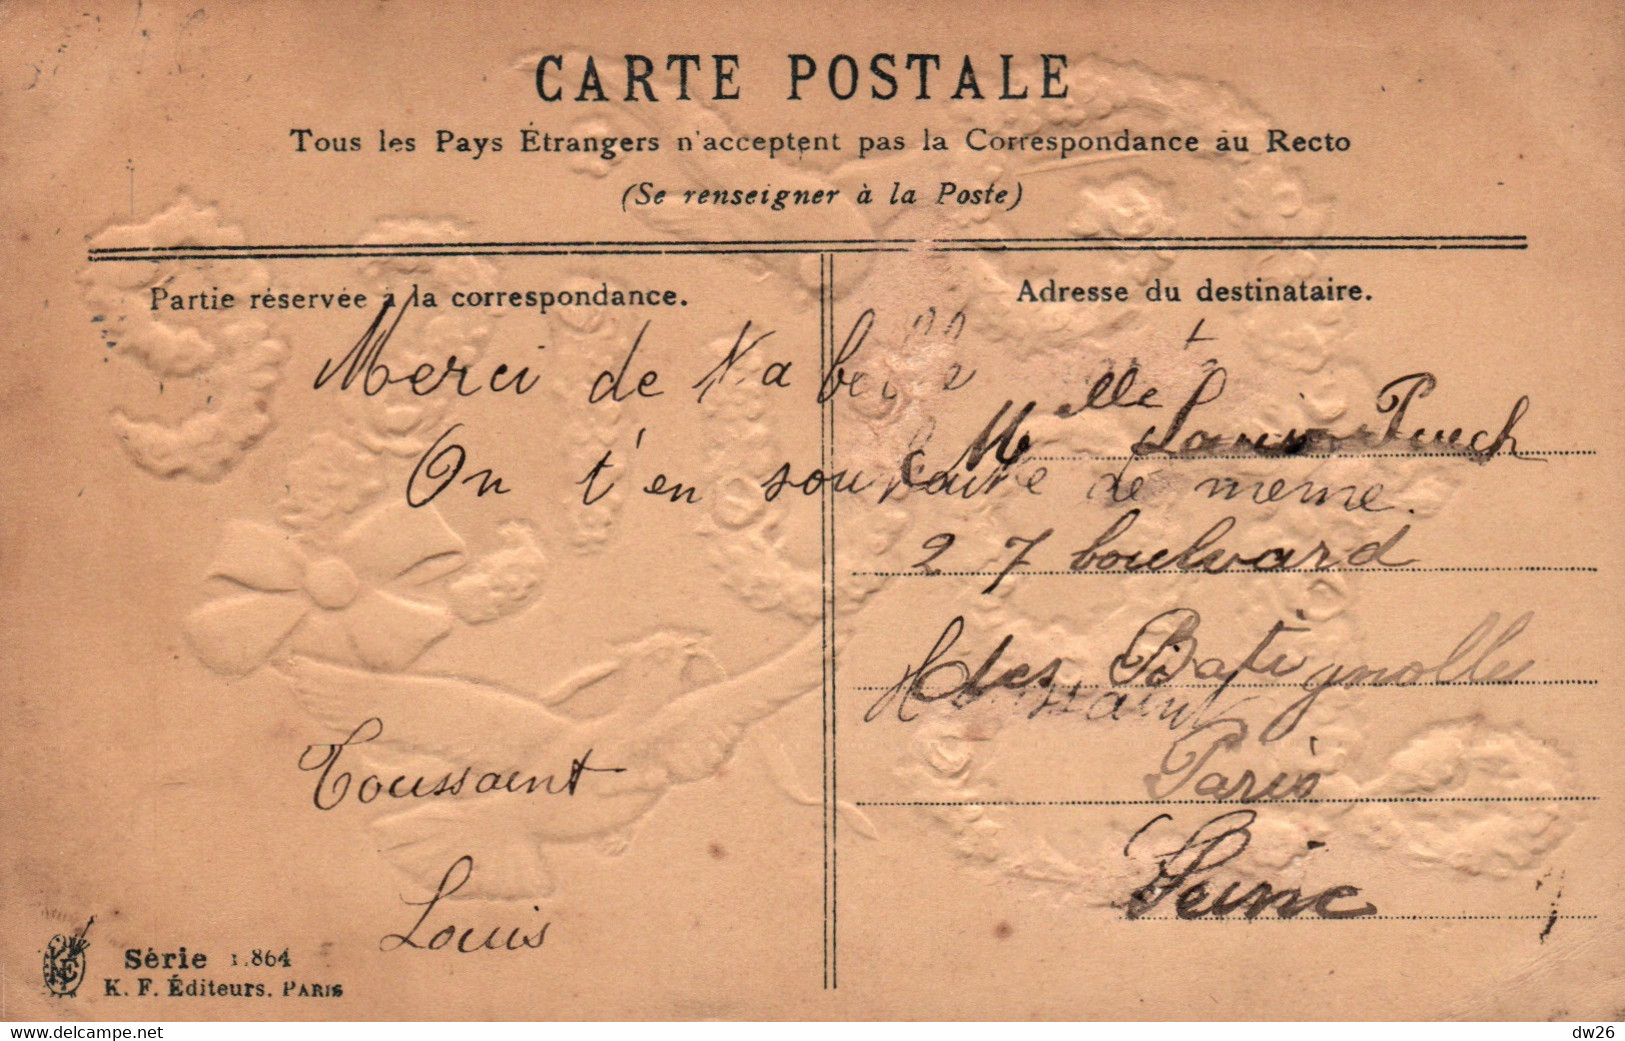 CARTE POSTALE
Tous les Pays Étrangers n'acceptent pas la Correspondance au Recto
(Se renseigner à la Poste)
Partie réservée à la correspondance.
Merci de ta belle
On t'en souhaite de meme.
Toussaint
Louis
Série 1.864
K. F. Éditeurs. PARIS
Adresse du destinataire.
Melle Puech
27 boulvard
des Batignolles
Paris
Seine
www.delcampe.net
dw26